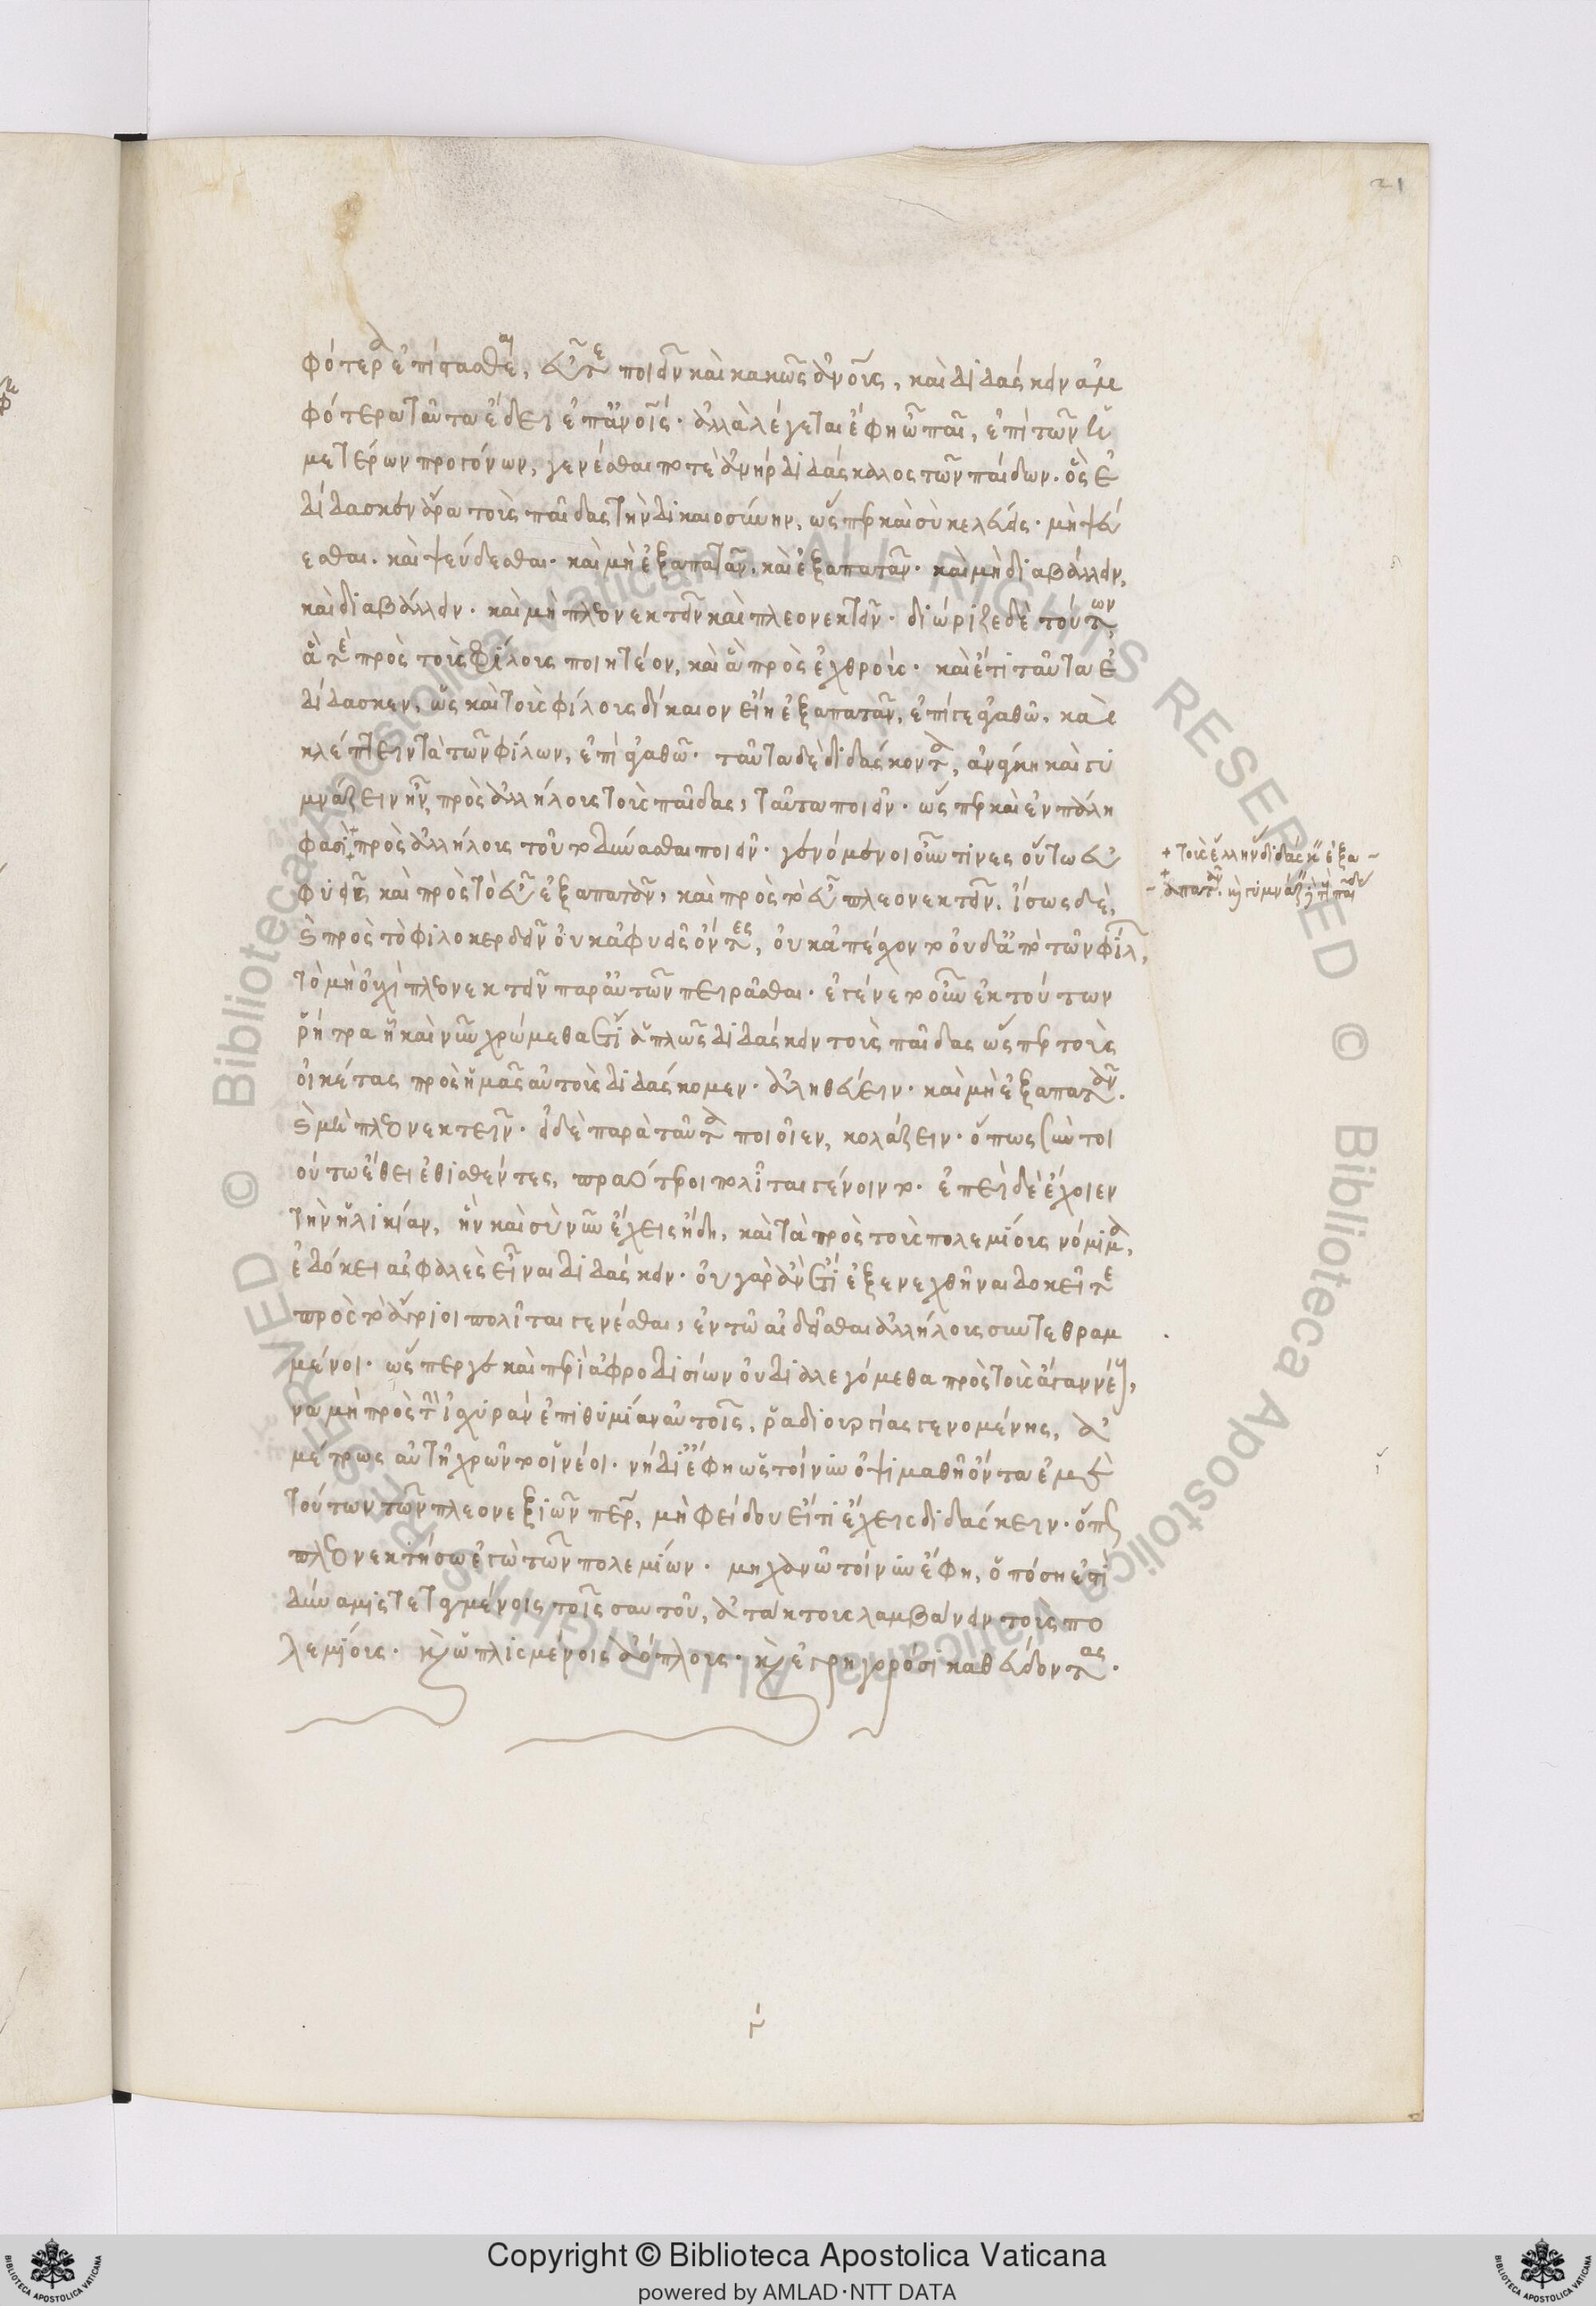 21
φότερα ἐπίστασθαι, εὖ τε ποιεῖν καὶ κακῶς ἀνοις, καὶ διδάσκειν ἀμ
φότερα ταῦτα ἔδει ἐπ' ἀνοις. ἀλλὰ λέγεται ἔφη ὦ παῖ, ἐπὶ τῶν ἡ
μετέρων προγόνων, γενέσθαι ποτὲ ἀνὴρ διδάσκαλος τῶν παίδων. ὃς ἐ
δίδασκεν ἄρα τοὺς παῖδας τὴν δικαιοσύνην, ὥσπερ καὶ σὺ κελεύεις. μὴ ψεύ
εσθαι. καὶ ψεύδεσθαι. καὶ μὴ ἐξαπατᾶν, καὶ ἐξαπατᾶν. καὶ μὴ διαβάλλειν,
καὶ διαβάλλειν. καὶ μὴ πλεονεκτεῖν καὶ πλεονεκτεῖν. διώριζε δὲ τούτων,
ἅ τε πρὸς τοὺς φίλους ποιητέον, καὶ ἃ πρὸς ἐχθρούς. καὶ ἔτι ταῦτα ἐ
δίδασκεν, ὡς καὶ τοὺς φίλους δίκαιον εἴη ἐξαπατᾶν, ἐπί γε ἀγαθῶ, καὶ
κλέπτειν τὰ τῶν φίλων, ἐπὶ ἀγαθῶ. ταῦτα δὲ διδάσκοντα, ἀνάγκη καὶ γυ
μνάζειν ἦν πρὸς ἀλλήλους τοὺς παῖδας, ταῦτα ποιεῖν. ὥσπερ καὶ ἐν πάλη
φασὶ + πρὸς ἀλλήλους τοῦτο δύνασθαι ποιεῖν. γενόμενοι οὖν τινες οὕτω εὐ
φυεῖς καὶ πρὸς τὸ εὖ ἐξαπατᾶν, καὶ πρὸς τὸ εὖ πλεονεκτεῖν. ἴσως δὲ,
καὶ πρὸς τὸ φιλοκερδεῖν οὐκ ἀφυεῖς ὄντες, οὐκ ἀπέχοντο οὐδ' ἀπὸ τῶν φίλων,
τὸ μὴ οὐχὶ πλεονεκτεῖν παρ' αὐτῶν πειρᾶσθαι. ἐγένετο οὖν ἐκ τούτων
ῥήτρα ἣ καὶ νῦν χρώμεθα ἔτι ἁπλῶς διδάσκειν τοὺς παῖδας ὥσπερ τοὺς
οἰκέτας πρὸς ἡμᾶς αὐτοὺς διδάσκομεν. ἀληθεύειν. καὶ μὴ ἐξαπατᾶν.
καὶ μὴ πλεονεκτεῖν. εἰ δὲ παρὰ ταῦτα ποιοῖεν, κολάζειν. ὅπως σὺν τοι
ούτω ἔθει ἐθισθέντες, πραότεροι πολῖται γένοιντο. ἐπεὶ δὲ ἔχοιεν
τὴν ἡλικίαν, ἣν καὶ σὺ νῦν ἔχεις ἤδη, καὶ τὰ πρὸς τοὺς πολεμίους νόμιμα,
ἐδόκει ἀσφαλὲς εἶναι διδάσκειν. οὐ γὰρ ἂν ἔτι ἐξενεχθῆναι δοκεῖτε
πρὸς τὸ ἄγριοι πολῖται γενέσθαι, ἐν τῶ αἰδεῖσθαι ἀλλήλους συντεθραμ
μένοι. ὥσπερ γε καὶ περὶ ἀφροδισίων οὐ διαλεγόμεθα πρὸς τοὺς ἄγαν νέους,
ἵνα μὴ πρὸς τὴν ἰσχυρὰν ἐπιθυμίαν αὐτοῖς, ῥαδιουργίας γενομένης, ἀ
μέτρως αὐτῆ χρῶντο οἱ νέοι. νὴ δί' ἔφη ὡς τοίνυν ὀψιμαθῆ ὄντα ἐμὲ
τούτων τῶν πλεονεξιῶν πάτερ, μὴ φείδου εἴ τι ἔχεις διδάσκειν. ὅπως
πλεονεκτήσω ἐγὼ τῶν πολεμίων. μηχανῶ τοίνυν ἔφη, ὁπόση ἐστὶ
δύναμις τεταγμένοις τοῖς σαυτοῦ, ἀτάκτους λαμβάνειν τοὺς πο
λεμίους. καὶ ὡπλισμένοις ἀόπλους. καὶ ἐγρηγορόσι καθεύδοντας.
+ τοὺς ἕλληνας διδάσκειν ἐξα -
- απατᾶν. καὶ γυμνάζειν τοὺς παῖδας